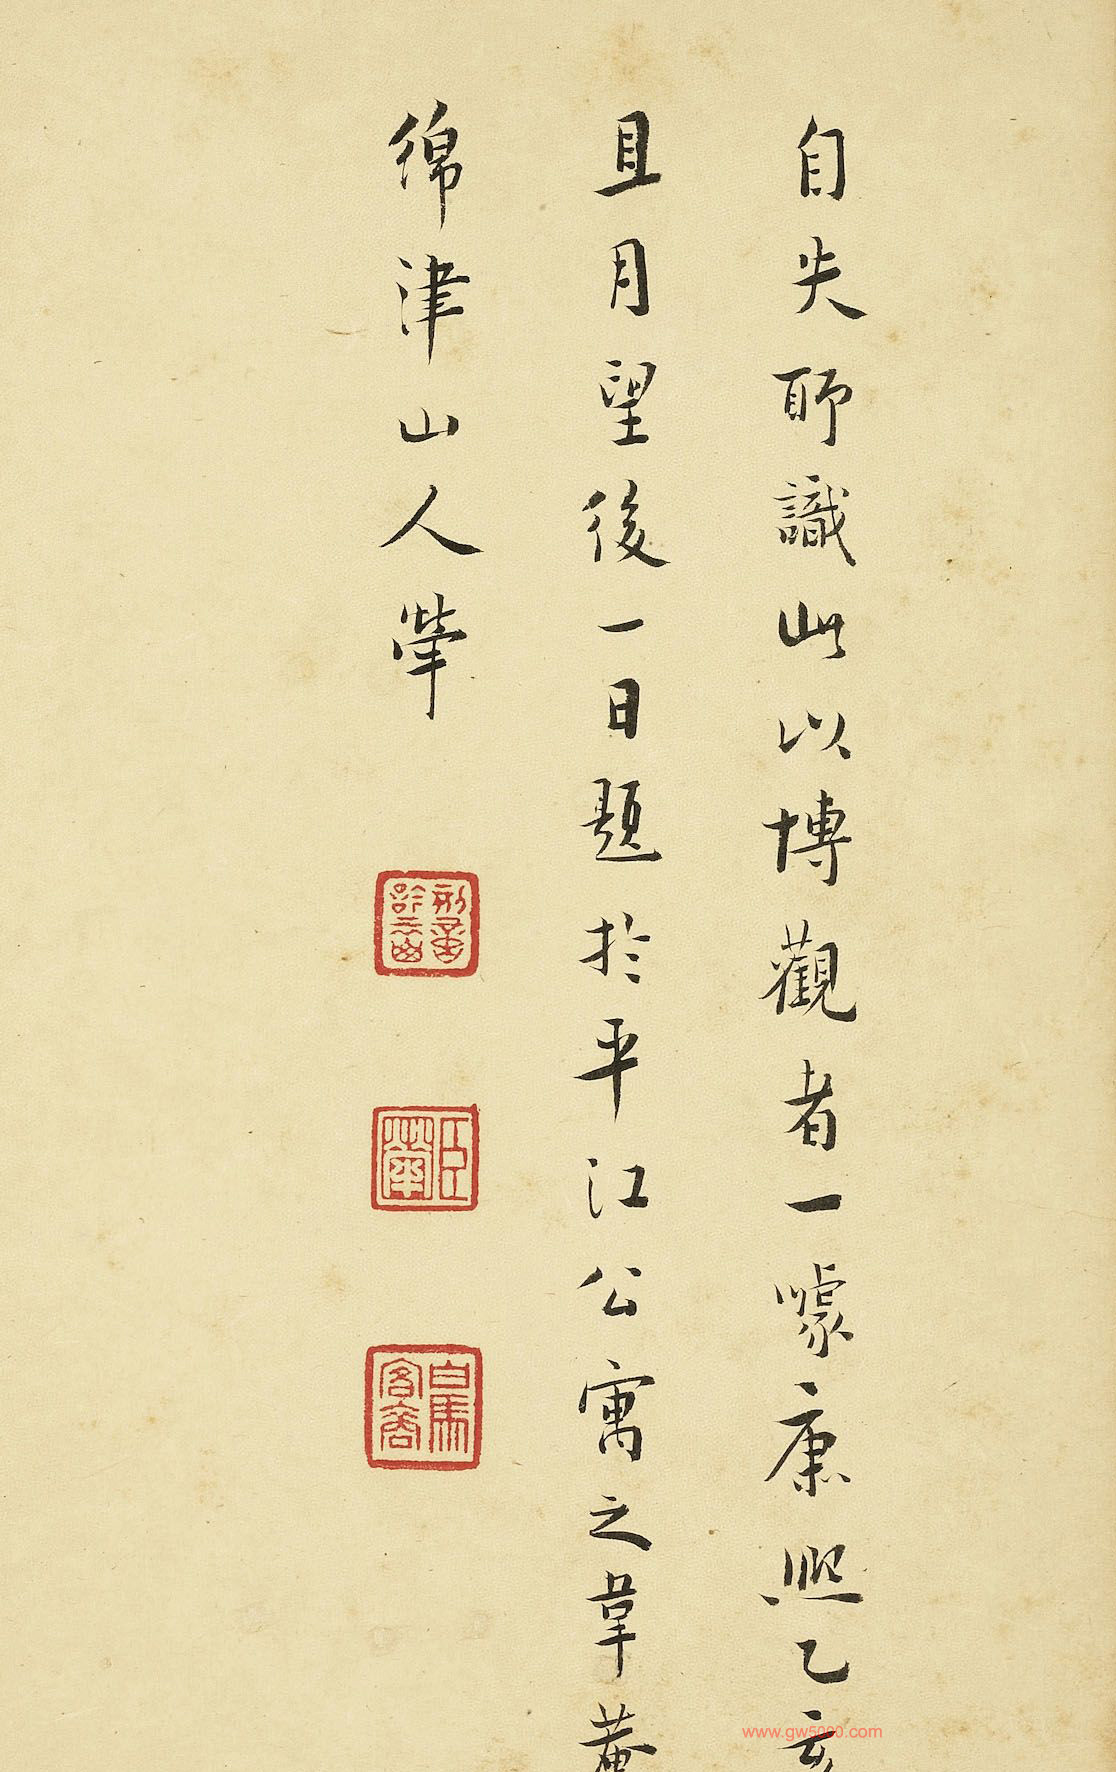 自失聊識此以博觀者一噱康熙乙亥
且月望後一日題於平江公寓之韋菴
綿津山人犖
臣犖
白馬客裔
www.gw5000.com